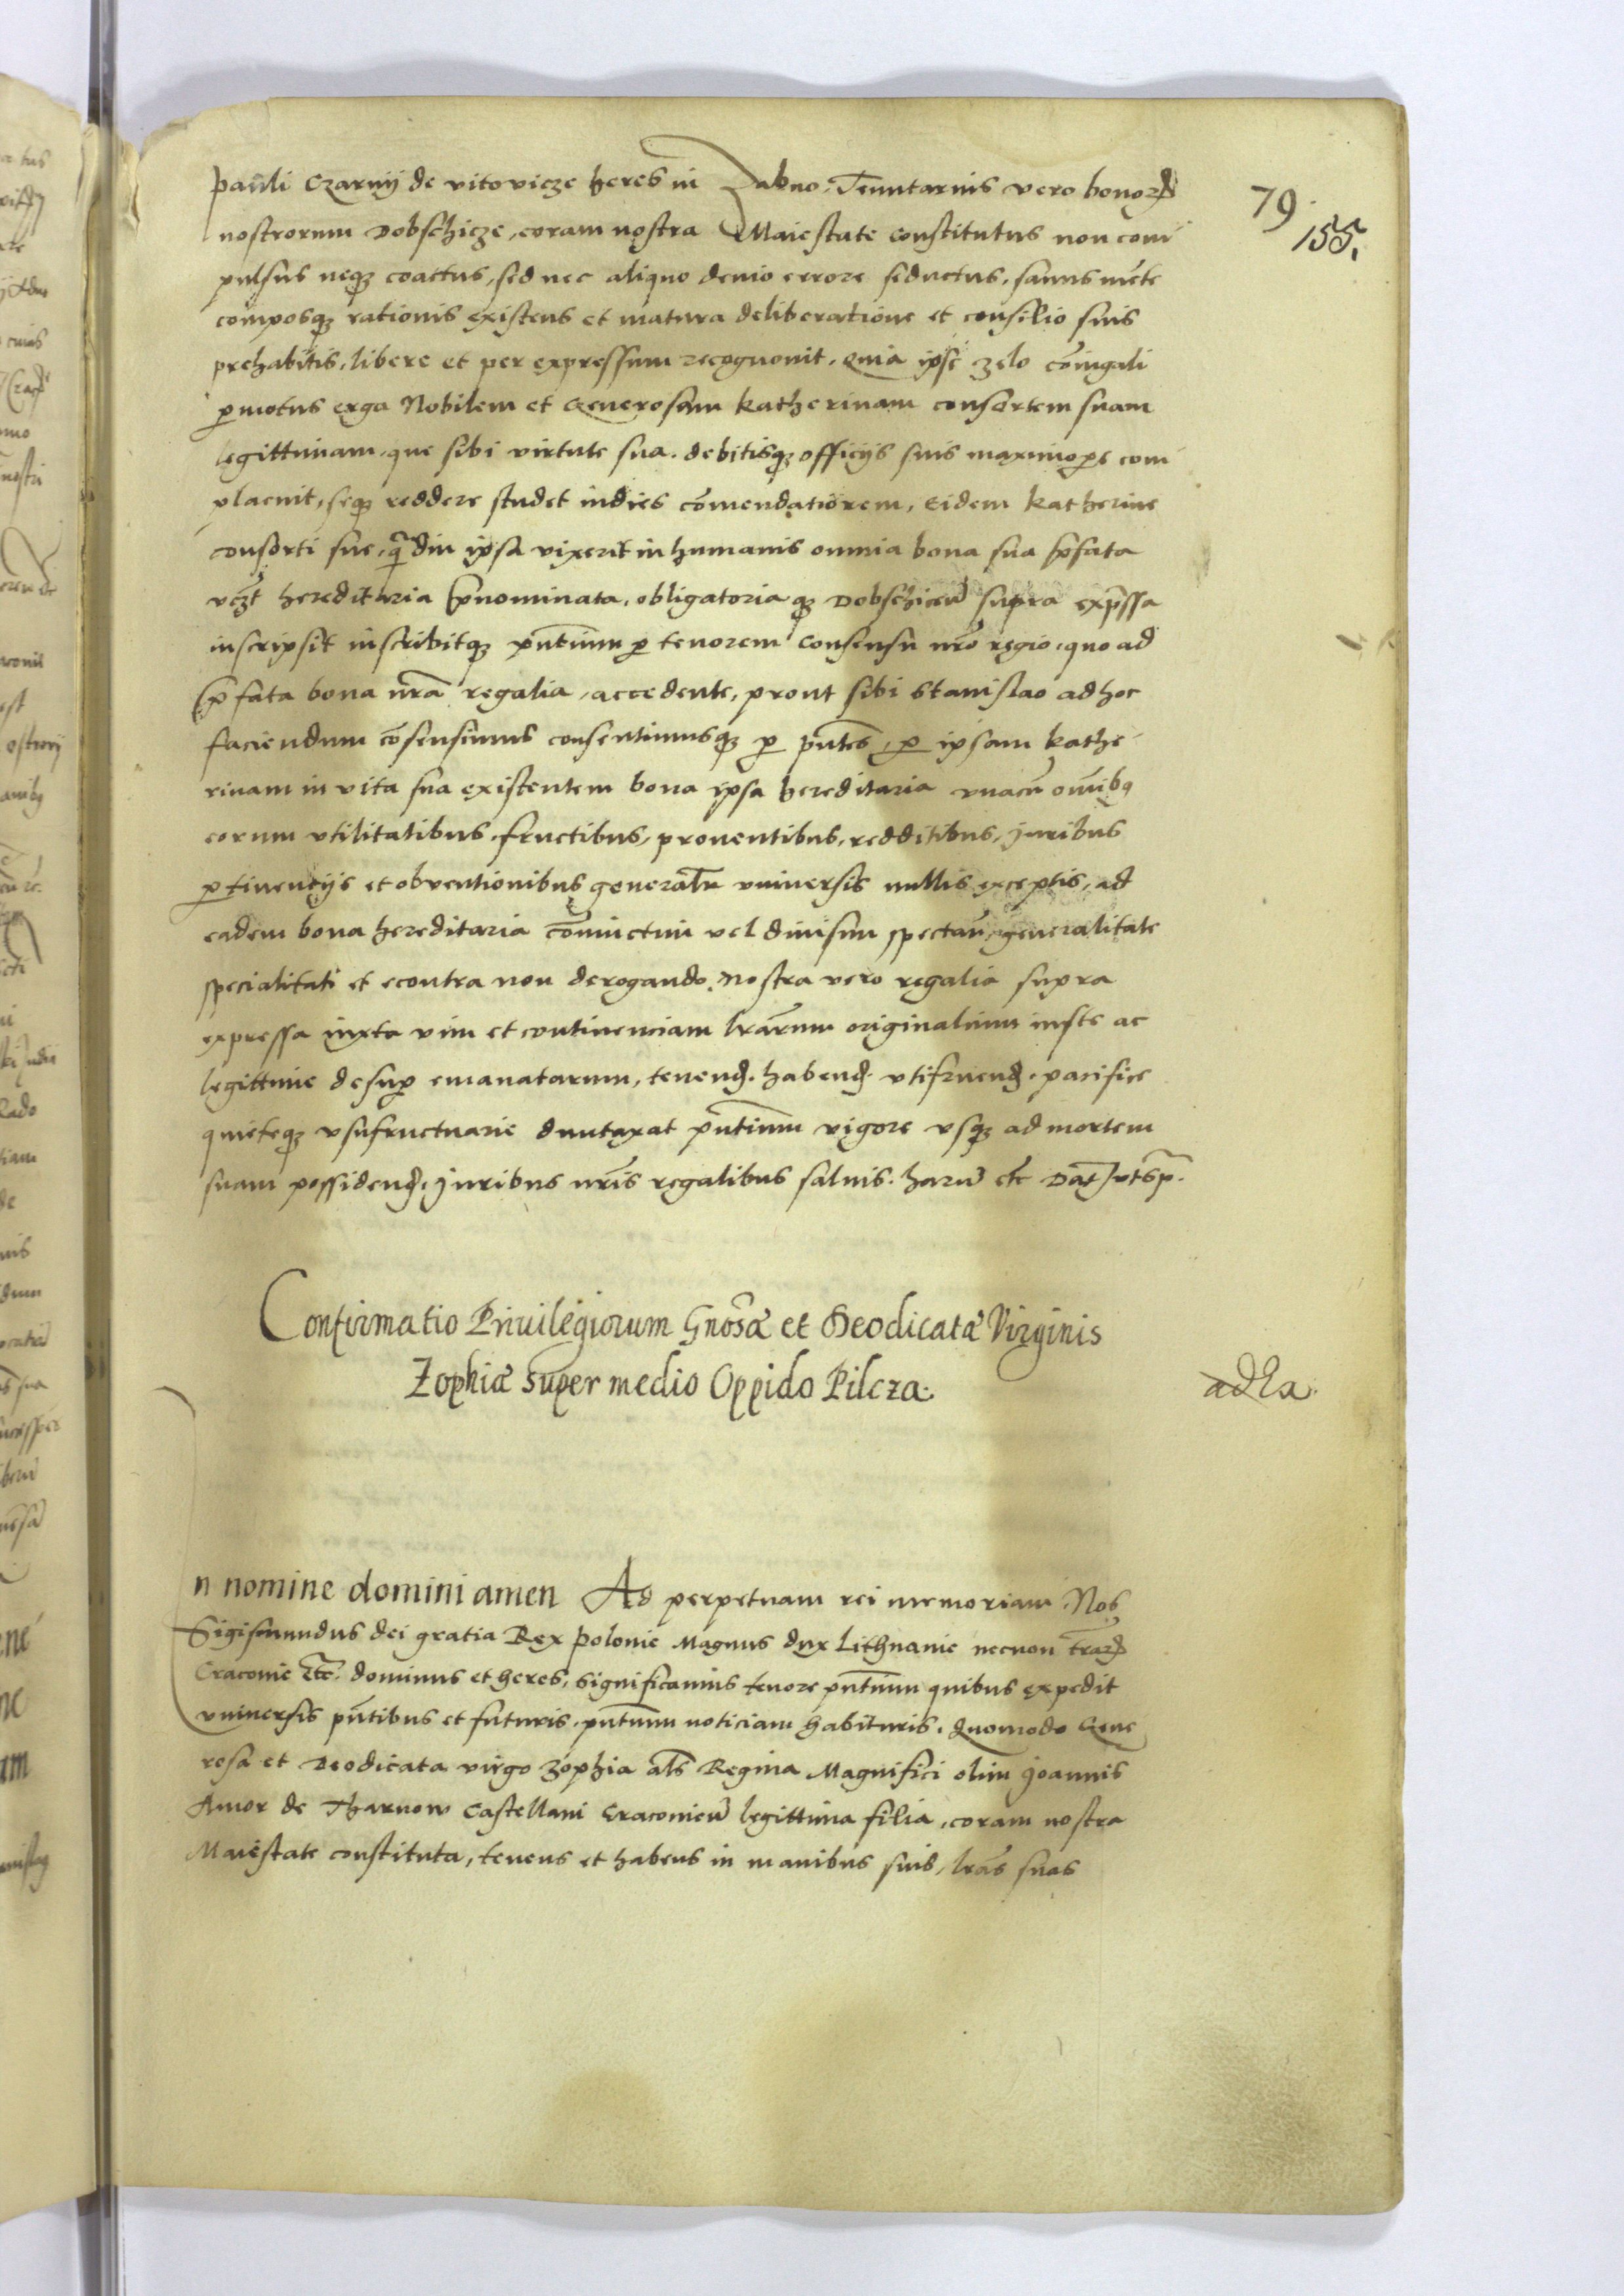 pauli Czarnij de vitovicze heres in Zabno, Tenutarius vero bonorꝝ
79
155.
nostrorum Dobschicze, coram nostra Maiestate constitutus non com
pulsus neqꝫ coactus, sed nec aliquo devio errore seductus, sanus mēte
composqꝫ rationis existens et matura deliberatione et consilio suis
prehabitis, libere et per expressum recognovit. Quia ipse zelo cōiugali
ꝑmotus erga Nobilem et Generosam Katherinam consortem suam
legittimam, que sibi virtute sua, debitisqꝫ officijs suis maximoꝑe com
placuit, seqꝫ reddere studet indies cōmendatiorem, Eidem Katherine
consorti sue, q̄ diu ipsa vixerit in humanis omnia bona sua p̄fata
vcꝫt hereditaria p̄nominata, obligatoria qꝫ Dobschiceñ supra exp̄ssa
inscripsit inscribitqꝫ pn̄tium ꝑ tenorem consensu nr̄o regio, quo ad
p̄fata bona nr̄a regalia, accedente, prout sibi Stanislao ad hoc
faciendum cōsensimus consentimusqꝫ ꝑ pn̄tes, ꝑ ipsam Kathe
rinam in vita sua existentem bona ipsa hereditaria vnacū om̄ibꝫ
eorum vtilitatibus, fructibus, proventibus, redditibus, juribus
ꝑtinencijs et obventionibus generalr̄ vniversis nullis exceptis, ad
eadem bona hereditaria cōiunctim vel divisim spectan̄, generalitate
specialitati et econtra non derogando, Nostra vero regalia supra
expressa iuxta vim et continenciam lr̄arum originalium iuste ac
legittime desuꝑ emanatarum, tenend̄. habend̄. vtifruend̄. pacifice
quieteqꝫ vsufructuarie duntaxat pn̄tium vigore vsqꝫ ad mortem
suam possidend̄. Juribus nr̄is regalibus salvis. harū etc̄ Dat̄ vtsp̄.
Confirmatio Priuilegiorum Gn̄osæ et Deodicatæ Virginis
Zophiæ super medio Oppido Pilcza.
n nomine domini amen Ad perpetuam rei memoriam Nos
Sigismundus dei gratia Rex polonie Magnus dux Lithuanie necnon tr̄arꝝ
Cracovie etc̄. dominus et heres, significamus tenore pn̄tium quibus expedit
vniversis pn̄tibus et futuris, pn̄tium noticiam habituris. Quomodo Gene
rosa et Deodicata virgo Zophia al̄s Regina Magnifici olim Joannis
Amor de Tharnow Castellani Cracovieñ legittima filia, coram nostra
Maiestate constituta, tenens et habens in manibus suis, lr̄as suas